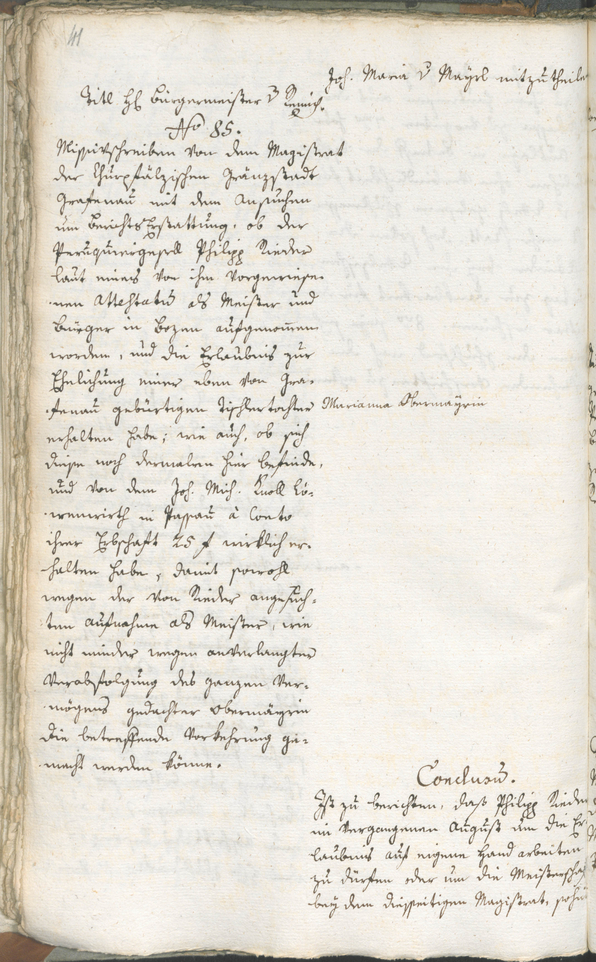 41
Joh. Maria v Mayrl mitzutheile
Titl Hl Bürgermeister v
No 85.
Missivschreiben von dem Magistrat
der Churpfälzischen Gränzstadt
Grafenau mit dem Ansuchen
um Berichts Erstattung, ob der
Peruquiergesell Philipp Rieder
laut eines von ihm vorgewiese-
nen Attestatis als Meister und
Bürger in Bozen aufgenommen
worden, und die Erlaubnis zur
Ehelichung einer eben von Gra-
fenau gebürtigen Tischlertochter
Marianna Obermayrin
erhalten habe; wie auch, ob sich
diese noch dermalen hier befinde,
und von dem Joh. Mich. Knoll Lö-
wenwirth in Passau à Conto
ihrer Erbschaft 25 f wirklich er-
halten habe, damit sowohl
wegen der von Rieder angesuch-
ten Aufnahme als Meister, wie
nicht minder wegen anverlangter
Verabfolgung des ganzen Ver-
mögens gedachter Obermayrin
die betreffende Vorkehrung ge-
macht werden könne.
Conclusum.
Ist zu berichten, daß Philipp Rieder
im vergangenen August um die Er-
laubnis auf eigene Hand arbeiten
zu dürfen oder um die Meisterschaf
bey dem diesseitigen Magistrat,